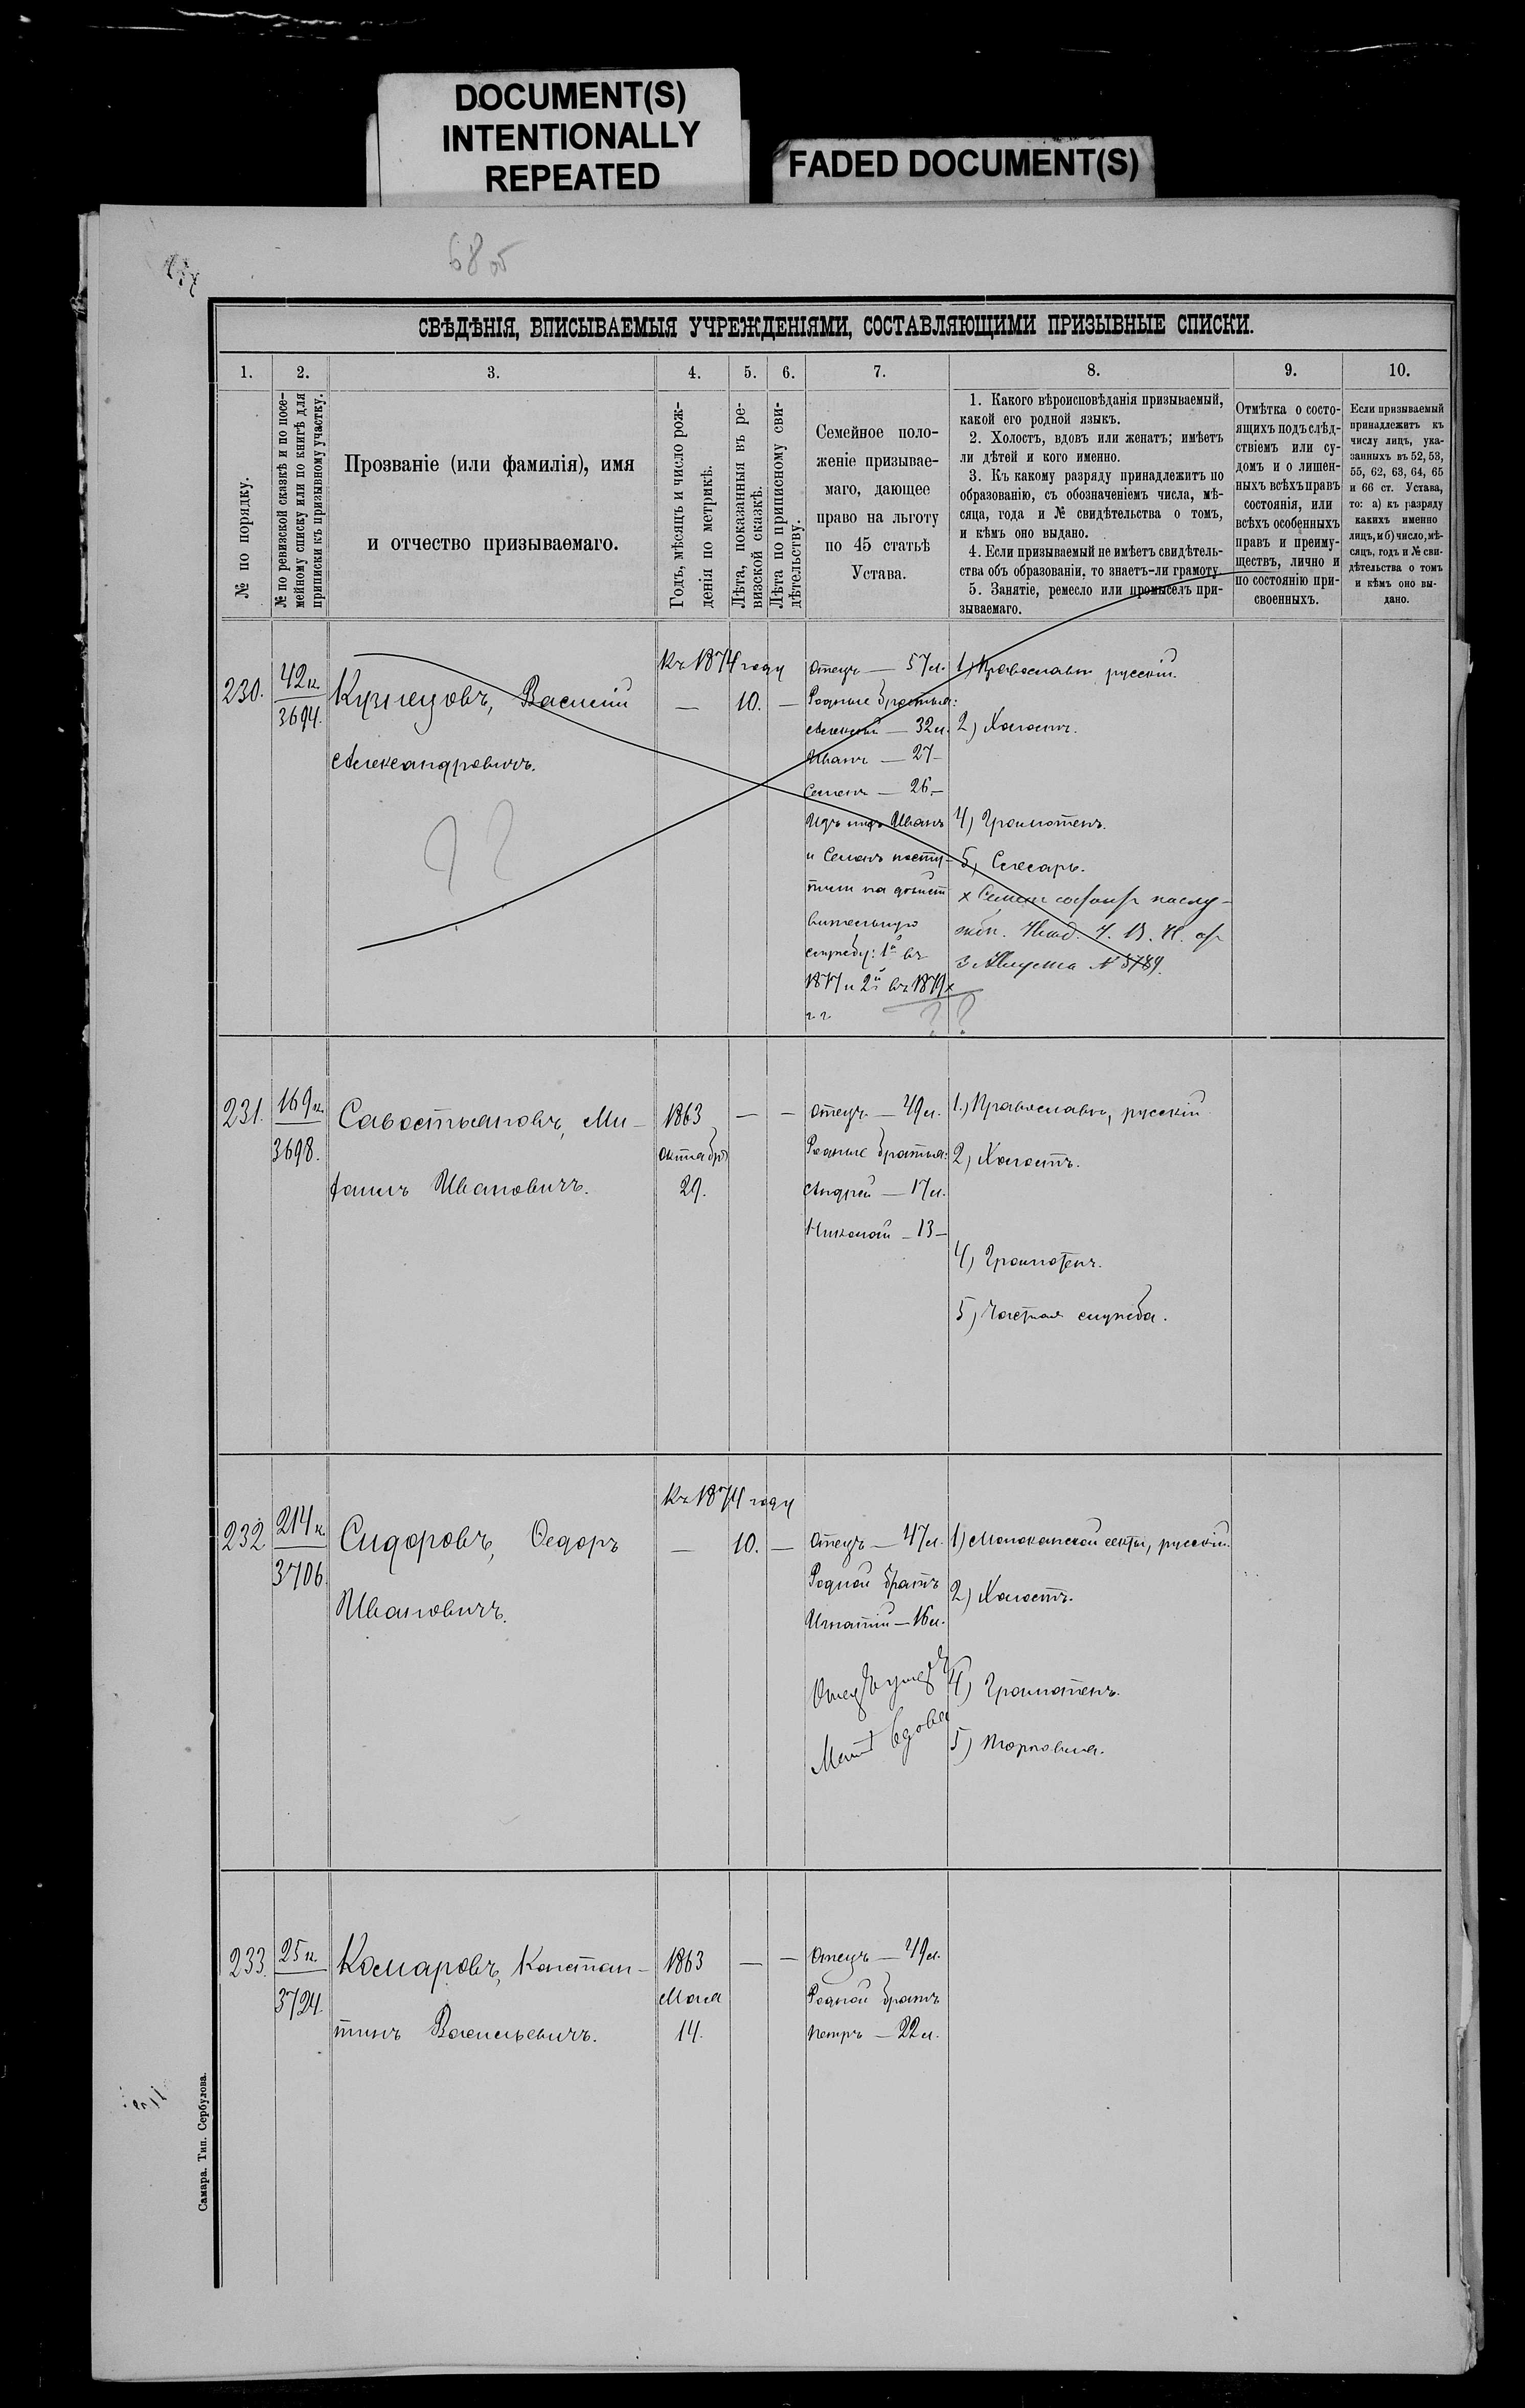 DOCUMENT(S)
INTENTIONALLY
REPEATED
FADED DOCUMENT(S)
68 об
СВѢДѢНІЯ, ВПИСЫВАЕМЫЯ УЧРЕЖДЕНІЯМИ, СОСТАВЛЯЮЩИМИ ПРИЗЫВНЫЕ СПИСКИ.
1. 2. 3. 4. 5. 6. 7. 8. 9. 10.
№ по порядку.
№ по ревизской сказкѣ и по посе-
мейному списку или по книгѣ для
приписки къ призывному участку.
Прозваніе (или фамилія), имя
и отчество призываемаго.
Годъ, мѣсяцъ и число рож-
денія по метрикѣ.
Лѣта, показанныя въ ре-
визской сказкѣ.
Лѣта по приписному сви-
дѣтельству.
Семейное поло-
женіе призывае-
маго, дающее
право на льготу
по 45 статьѣ
Устава.
1. Какого вѣроисповѣданія призываемый,
какой его родной языкъ.
2. Холостъ, вдовъ или женатъ; имѣетъ
ли дѣтей и кого именно.
3. Къ какому разряду принадлежитъ по
образованію, съ обозначеніемъ числа, мѣ-
сяца, года и № свидѣтельства о томъ,
и кѣмъ оно выдано.
4. Если призываемый не имѣетъ свидѣтель-
ства объ образованіи, то знаетъ-ли грамоту.
5. Занятіе, ремесло или промыселъ при-
зываемаго.
Отмѣтка о состо-
ящихъ подъ слѣд-
ствіемъ или су-
домъ и о лишен-
ныхъ всѣхъ правъ
состоянія, или
всѣхъ особенныхъ
правъ и преиму-
ществъ, лично и
по состоянію при-
своенныхъ.
Если призываемый
принадлежитъ къ
числу лицъ, ука-
занныхъ въ 52, 53,
55, 62, 63, 64, 65
и 66 ст. Устава,
то: а) къ разряду
какихъ именно
лицъ, и б) число, мѣ-
сяцъ, годъ и № сви-
дѣтельства о томъ
и кѣмъ оно вы-
дано.
230.
42 к.
3694.
Кузнецовъ, Василій
Александровичъ.
Къ 1874 году
— 10. —
Отецъ — 57 л.
Родные братья:
Алексѣй — 32 л.
Иванъ — 27 —
Семенъ — 26 —
Изъ нихъ Иванъ
и Семенъ посту-
пили на дѣйст
вительную
службу: 1й въ
1877 и 2й въ 1879 х
г.г.
1) Православн русскій.
2) Холостъ.
4) Грамотенъ.
5) Слесарь.
х Семенъ
3 Августа № 3784.
231.
169 к.
3698.
Савостьяновъ, Ми-
фаилъ Ивановичъ.
1863
октября
29.
— —
Отецъ — 49 л.
Родные братья:
Андрей — 17 л.
Николай — 13 —
1.) Православн, русскій
2) Холостъ.
4) Грамотенъ.
5) Частная служба.
232.
214 к.
3706.
Сидоровъ, Ѳедоръ
Ивановичъ.
Къ 1874 году
— 10. —
Отецъ — 47 л.
Родной братъ
Игнатій — 16 л.
Мать вдова
1) Молоканской секты, русскій.
2) Холостъ.
4) Грамотенъ.
5) Торговля.
233.
25 к.
3724.
Комаровъ, Констан-
тинъ Васильевичъ.
1863
Мая
14.
— —
Отецъ — 49 л.
Родной братъ
Петръ — 22 л.
Самара. Тип. Сербулова.